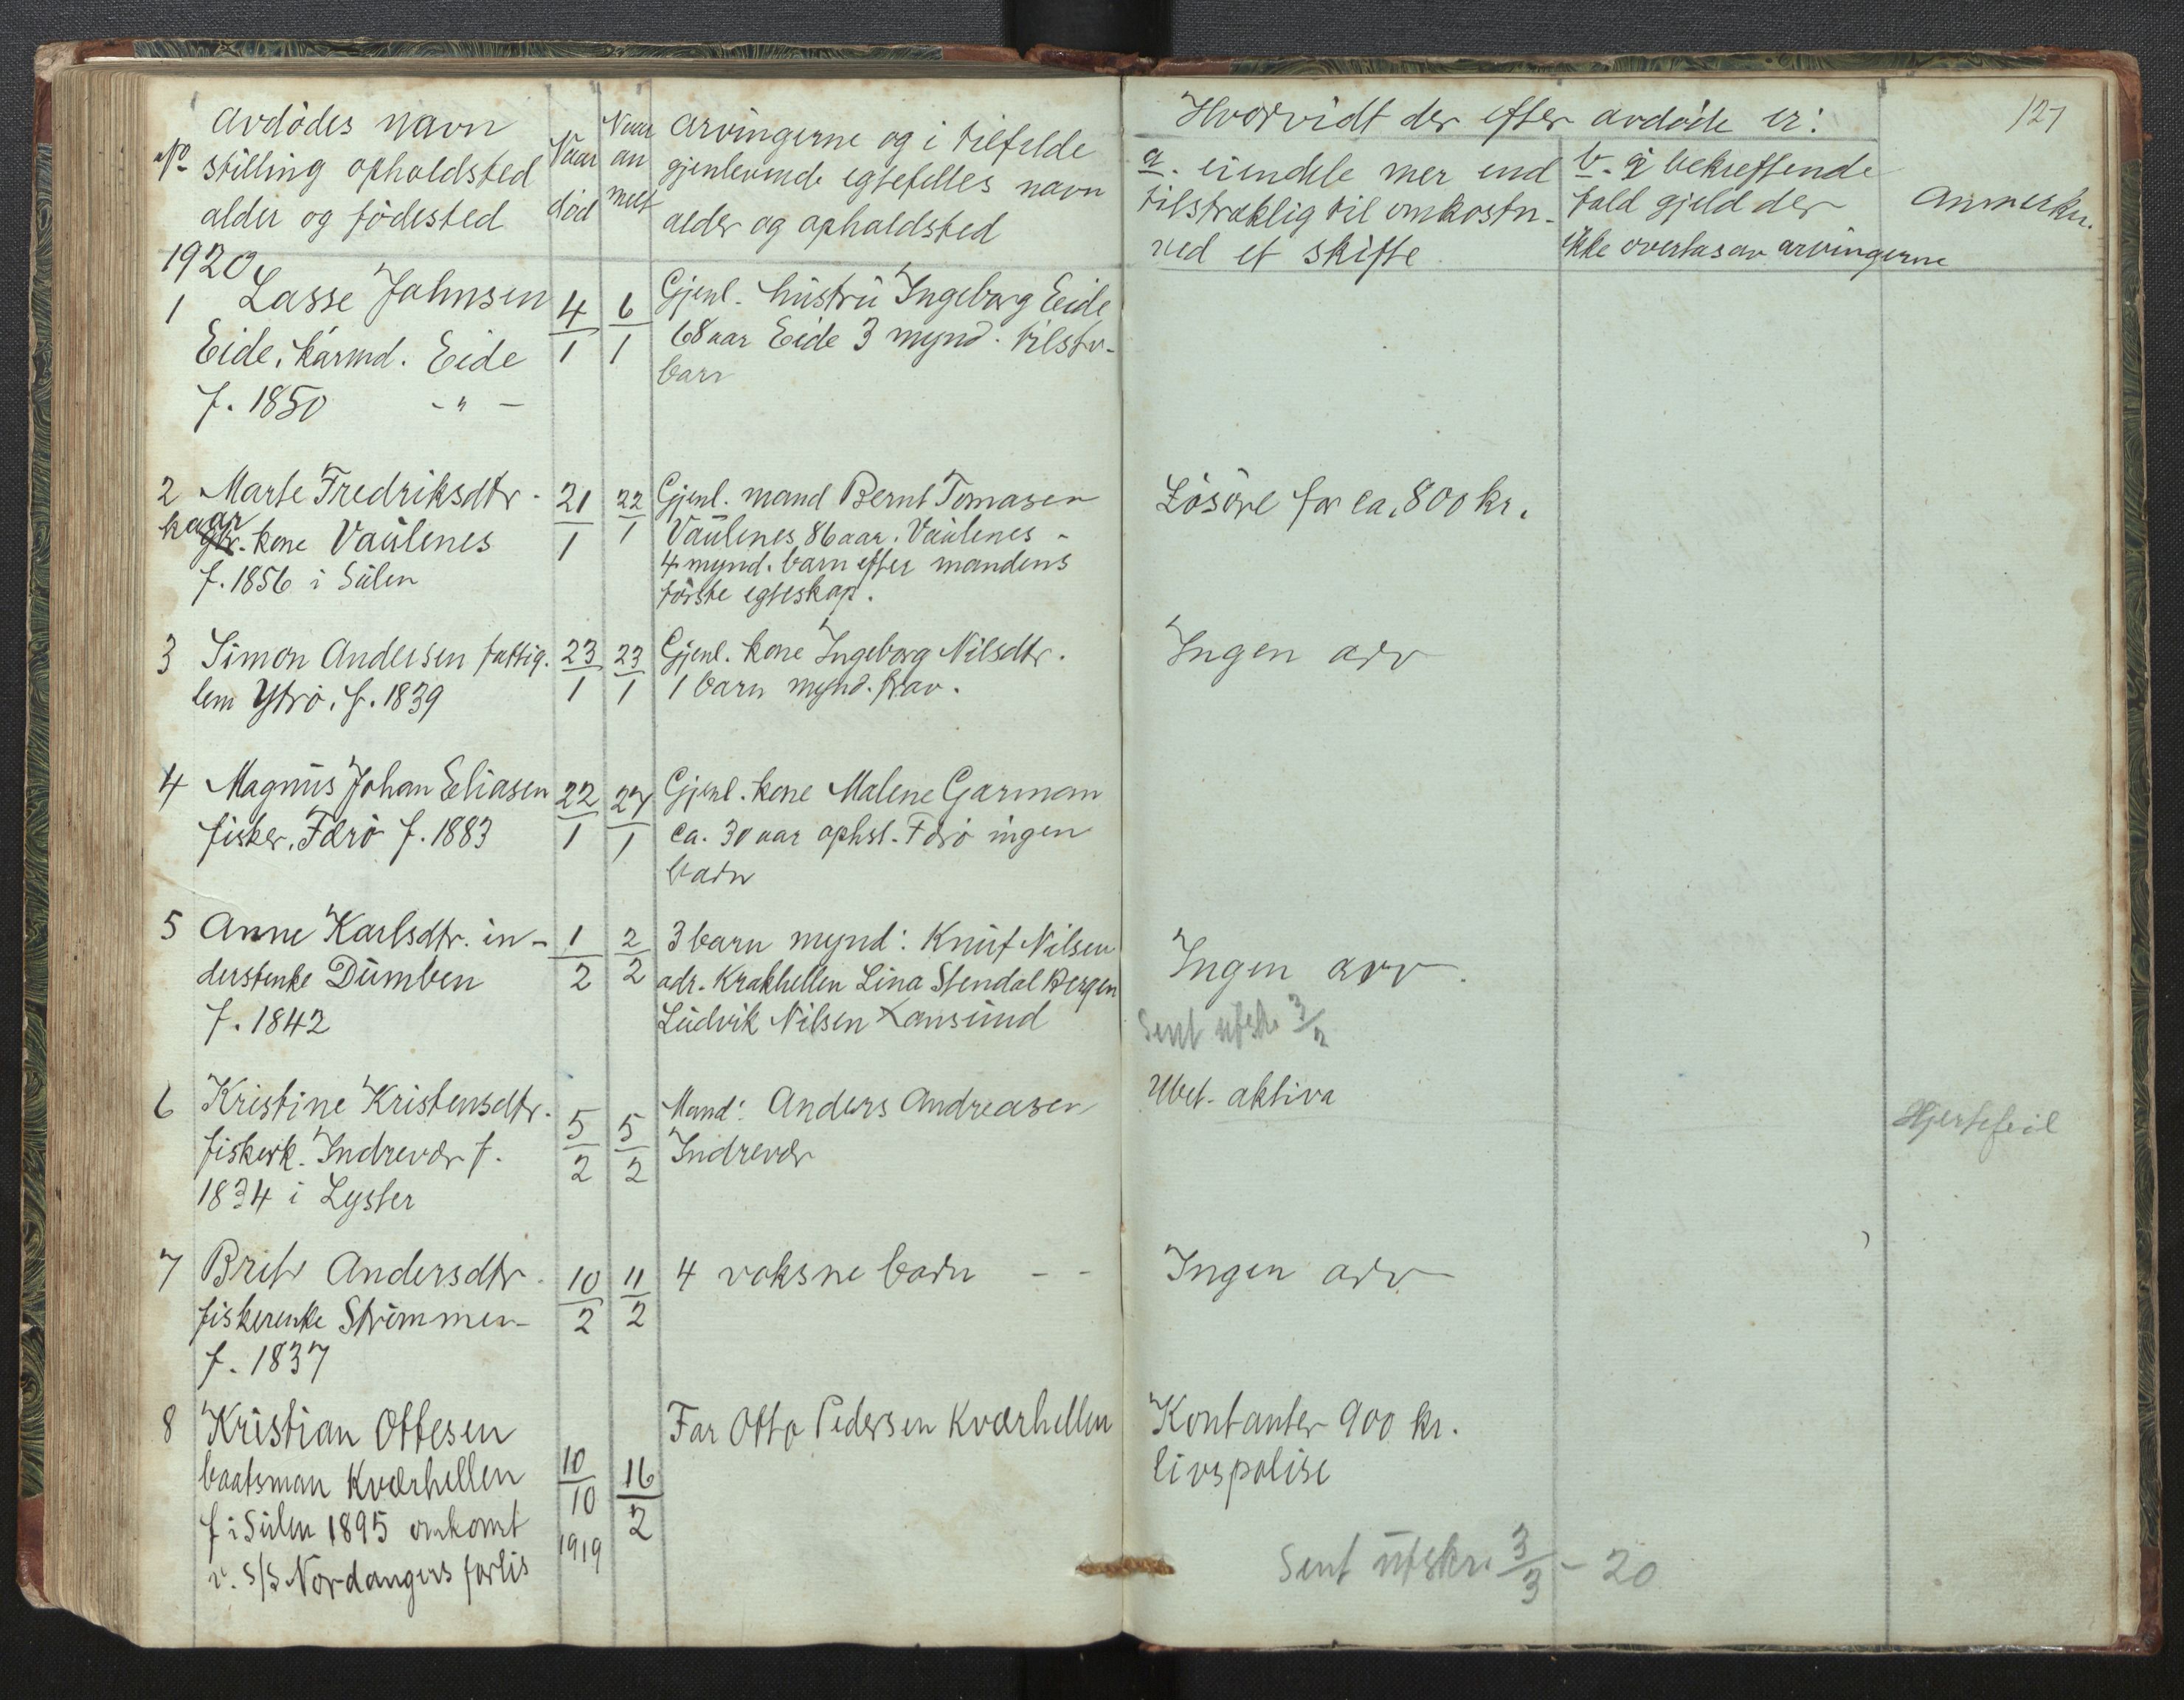 Avdødes navn
No stilling opholdsted
alder og fødested
Naar
død
Naar
an
melt
Arvingerne og i tilfelde
gjenlevende egtefelles navn
alder og opholdsted
Hvorvidt der efter avdøde er:
127
a. eiendele mer end
tilstræklig til omkostn-
ved et skifte.
b. i bekreftende
fald gjeld der
ikke overtas av arvingerne
Anmerkn.
1920
1 Lasse Johnsen
Eide, kårmd. Eide
f. 1850 - " -
4/1
6/1
Gjenl. hustru Ingeborg Eide
68 aar Eide 3 mynd. tilstv-
barn
2 Marte Fredriksdtr.
kaar
kone Vaulenes
f. 1856 i Sulen
21/1
22/1
Gjenl. mand Bernt Tomasen
Vaulenes 86 aar. Vaulenes -
4 mynd. barn efter mandens
første egteskap.
Løsøre for ca. 800 kr.
3 Simon Andersen fattig.
lem Ytrø. f. 1839
23/1
23/1
Gjenl. kone Ingeborg Nilsdtr.
1 barn mynd. frav.
Ingen arv
4 Magnus Johan Eliasen
fisker. Færø f. 1883
22/1
27/1
Gjenl. kone Malene Garman
ca. 30 aar ophst. Færø ingen
barn
5 Anne Karlsdtr. in-
derstenke Dumben
f. 1842
1/2
2/2
3 barn mynd: Knut Nilsen
adr. Krakhellen Lina Stendal Bergen
Ludvik Nilsen Kansund
Ingen arv.
Sent utskr 3/2
6 Kristine Kristensdtr.
fiskerk. Indrevær f.
1834 i Lyster
5/2
5/2
Mand: Anders Andreasen
Indrevær
Ubet. aktiva
Hjertefeil
7 Brite Andersdtr.
fiskerenke Strømmen
f. 1837
10/2
11/2
4 voksne barn - -
Ingen arv
8 Kristian Ottesen
baatsman Kværhellen
f i Sulen 1895 omkomt
v. S/S Nordangers forlis
10/10
1919
16/2
Far Otto Pedersen Kværhellen
Kontanter 900 kr.
livspolise
Sent utskr. 3/3 - 20